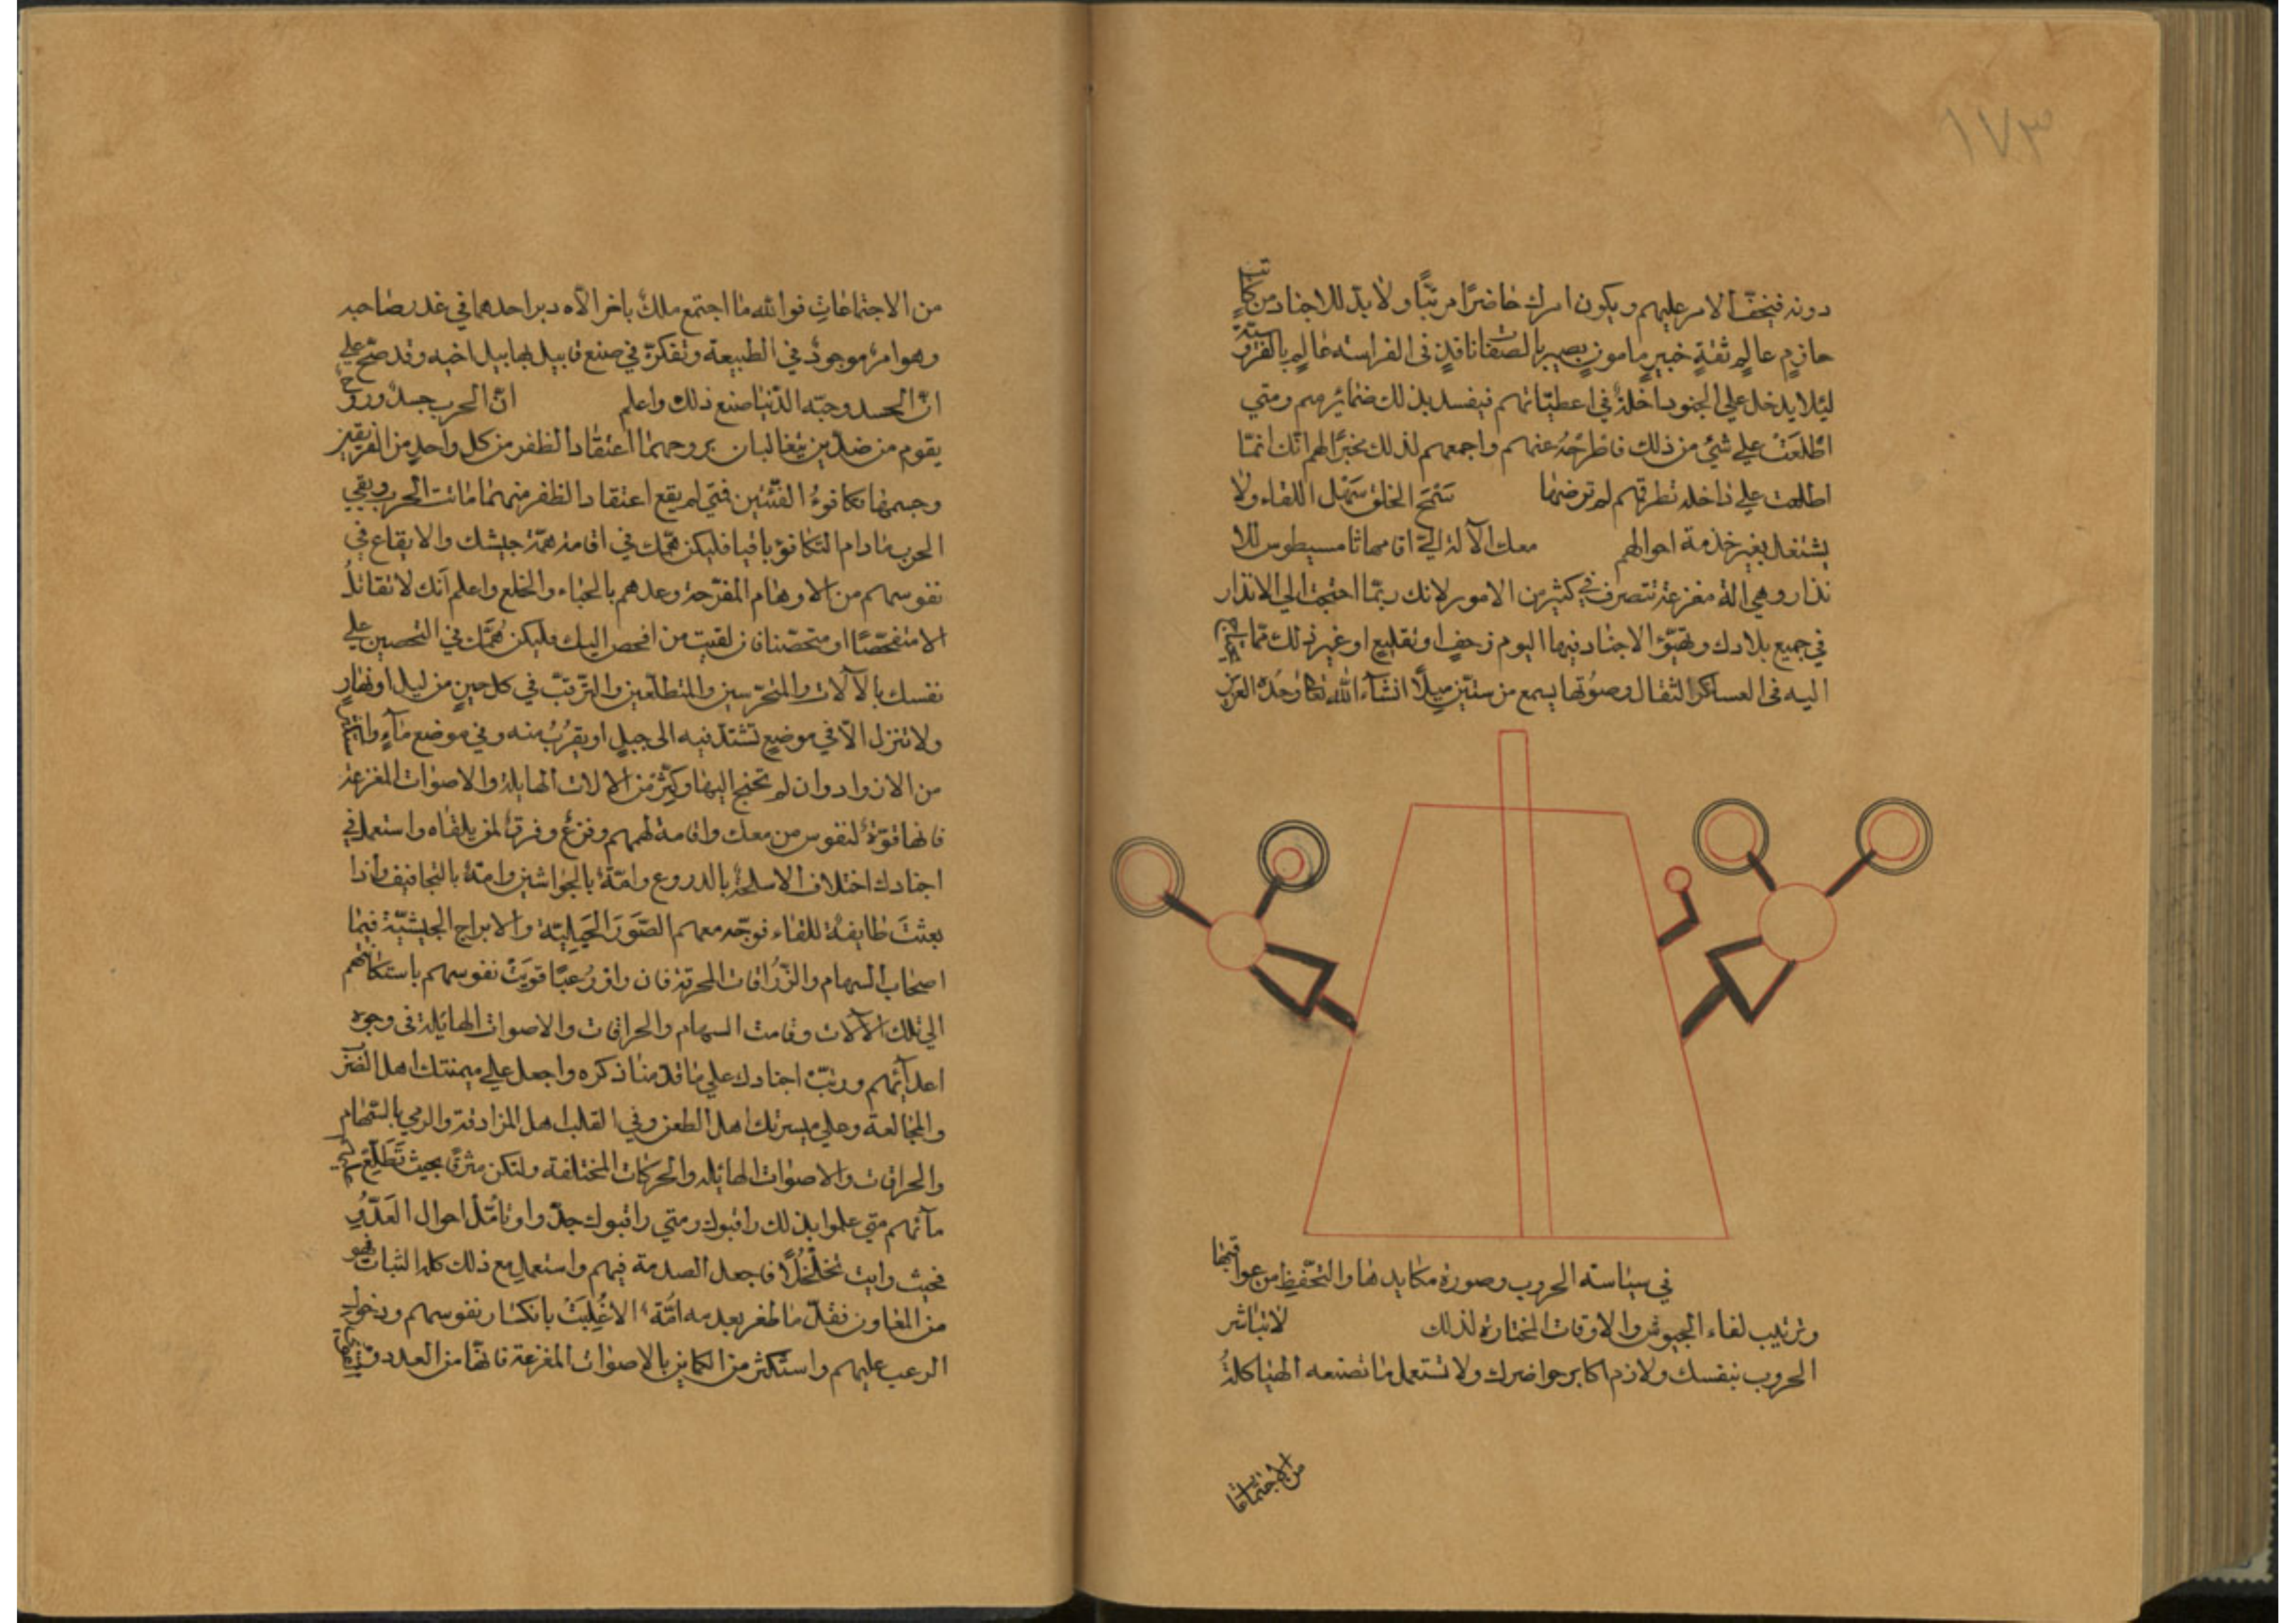 ١٧٣
دونه فيخفّ الامر عليهم ويكون امرك حاضرًا مرتبًا ولا بدّ للاجناد من كاتب
حازمٍ عالمٍ ثقةٍ خبيرٍ مامونٍ بصيرٍ بالصفات نافذٍ فى الفراسه عالمٍ بالفروسيّة
ليلا يدخل على الجنود داخلة في اعطيّاتهم فيفسد بذلك ضمائرهم ومتي
اطّلعت علي شئ من ذلك فاطرحه عنهم واجمعهم لذلك مخبرًا لهم انّك انمّا
اطلعت علي داخله تطرقهم لم ترضها سَمْح الخلق سَهْل اللقاء ولا
يشتغل بغير خدمة احوالهم معك الآلة التي اقامها ثامسيطوس للا
نذار وهي الة مفزعة تتصرف في كثير من الامور لانك ربمّا احتجت الي الانذار
في جميع بلادك وتهيّؤ الاجناد فيها اليوم زحفٍ او تقليع او غير ذلك ممّا يحتاج
اليه فى العساكر الثقال وصوتها يسمع من ستّين ميلًا انشاء الله تعا وحده العزيز
في سياسته الحروب وصورة مكايدها والتحفّظ من عواقبها
وترتيب لقاء الجيوش والاوقات المختارة لذلك لا تباشر
الحروب بنفسك ولازم اكابر حواضرك ولا تستعمل ما تصنعه الهياكلة
من الاجتماعات
من الاجتماعاتِ فوالله ما اجتمع ملك باخر الّا ه دبر احدهما في غدر صاحبه
وهو امر موجود في الطبيعة وتفكرّ في صنع قابيل بهابيل اخيه وقد صحّ علي
انّ الحسد وحبّه الدّنيا صنع ذلك واعلم انّ الحرب جسدٌ وروح
يقوم من ضدّين يتغالبان بروحهما اعتقاد الظفر من كل واحدٍ من الفريقين
وجسمها تكافؤ الفئتين فمتي لم يقع اعتقاد الظفر منهما ماتت الحرب وبقي
الحرب ما دام التكافؤ باقيا فليكن همّك في اقامة همّة جيشك والايقاع في
نفوسهم من الاوهام المفرحة وعدهم بالحباء والخلع واعلم انك لا تقاتلُ
الا متفحّصًا او متحصّنا فان لقيت من افحص اليك فليكن هُمّك في التحصين علي
نفسك بالآلات والمتحرّسين والمتطلّعين والترقّب في كل حينٍ من ليل او نهارٍ
ولا تنزل الّا في موضعٍ تشتدّ فيه الى جبلٍ او يقرُب منه وفي موضع ماءٍ واستكثر
من الازواد وان لم تحتج اليها وكثّر من الالات الهايلة والاصوات المفزعة
فانها قوّة لنفوس من معك واقامة لهممهم وفزع وفرق لمن يلقاه واستعمل في
اجنادك اختلاف الاسلحة بالدروع وامّة بالجواشن وامّة بالتجافيف واذا
بعثتَ طايفة للقاء فوجّه معهم الصّوَر الحَيليّة والابراج الجيشيّة فيها
اصحاب السهام والزّرّاقات المحرقة فان واقوا رُعبًا قويَتْ نفوسهم باستكانتهم
الي تلك الآلات وقامت السهام والحراقات والاصوات الهائلة فى وجوه
اعدآئهم ورتبّ اجنادك علي ما قدّمنا ذكره واجعل علي ميمنتك اهل الضرب
والمخالعة وعلي ميسرتك اهل الطعن وفي القلب اهل المزادفة والرمي بالسّهام
والحراقات والاصوات الهائله والحركات المختلفة ولتكن مشرفًا بحيث تَطّلِع
مآئهم متي علوا بذلك راقبوك ومتي راقبوك جدّوا وتأمّل احوال العَدّوِ
فحيث رايت تخلخلًا فاجعل الصدمة فيهم واستعمل مع ذلك كله الثبات فهو
من المعاون فقلّ ما ظفر بعدمه امّة الا غُلبَتْ بانكسار نفوسهم ودخول
الرعب عليهم واستكثر من الكماين بالاصوات المفزعة فانهّا من العدد